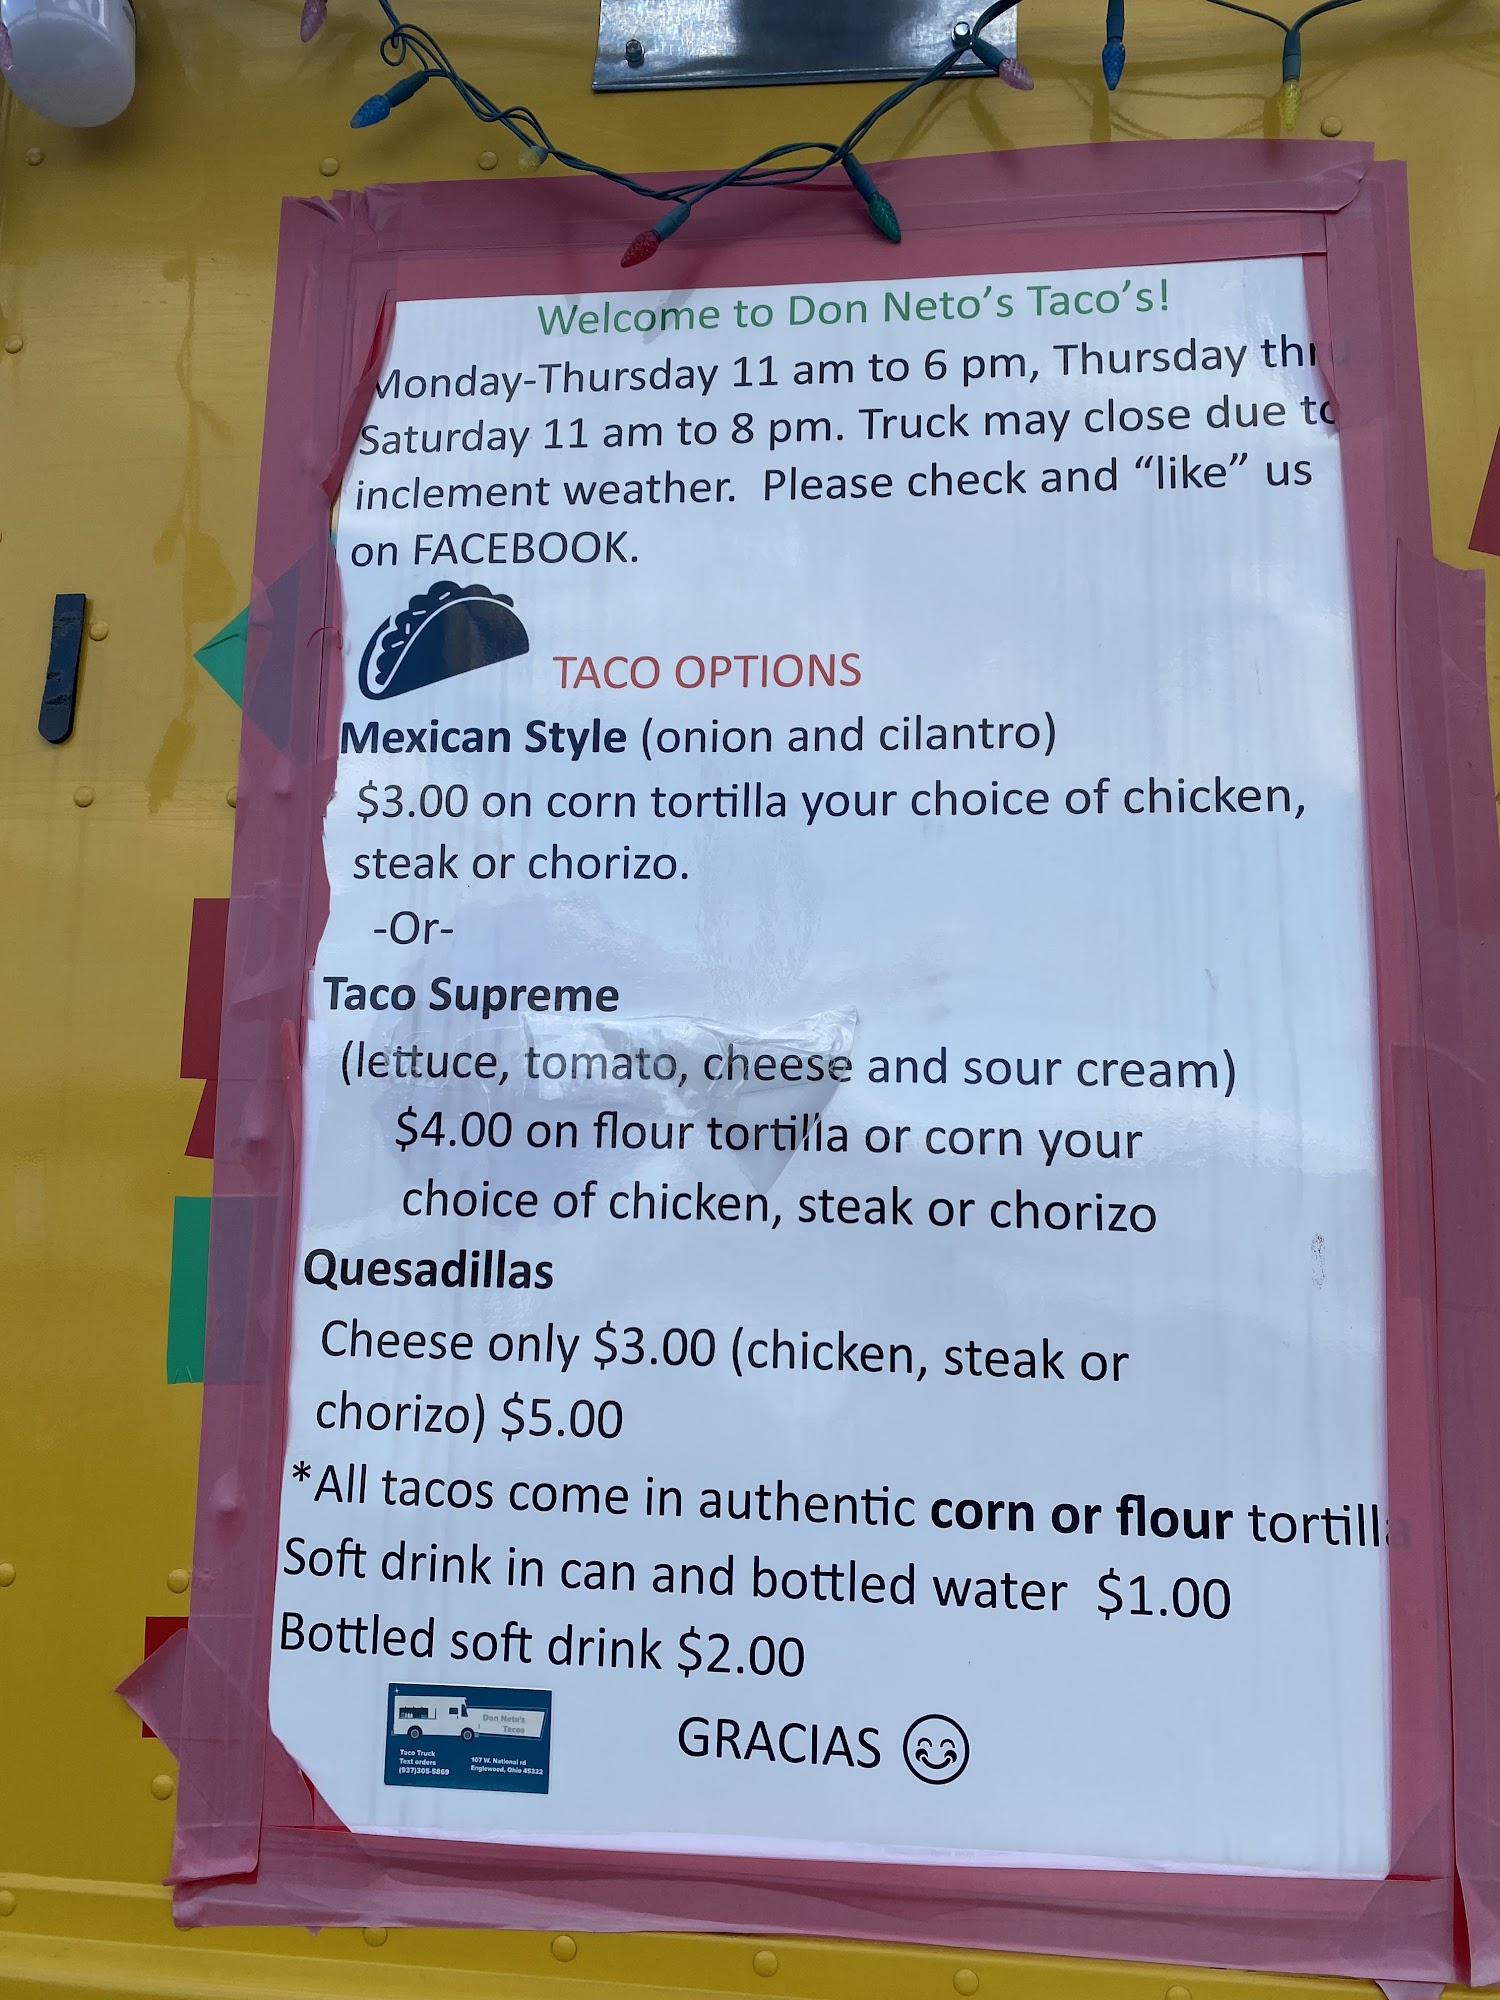 Welcome to Don Neto's Taco's!
Monday-Thursday 11 am to 6 pm, Thursday thru
Saturday 11 am to 8 pm. Truck may close due to
inclement weather. Please check and “like” us
on FACEBOOK.
TACO OPTIONS
Mexican Style (onion and cilantro)
$3.00 on corn tortilla your choice of chicken,
steak or chorizo.
-Or-
Taco Supreme
(lettuce, tomato, cheese and sour cream)
$4.00 on flour tortilla or corn your
choice of chicken, steak or chorizo
Quesadillas
Cheese only $3.00 (chicken, steak or
chorizo) $5.00
*All tacos come in authentic corn or flour tortilla
Soft drink in can and bottled water $1.00
Bottled soft drink $2.00
GRACIAS
Don Neto's
Tacos
Taco Truck
Text orders
(937)305-5869
107 W. National rd
Englewood, Ohio 45322